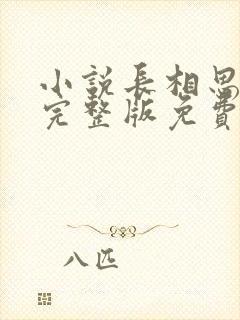 小説長相思
完整版免費
八匹